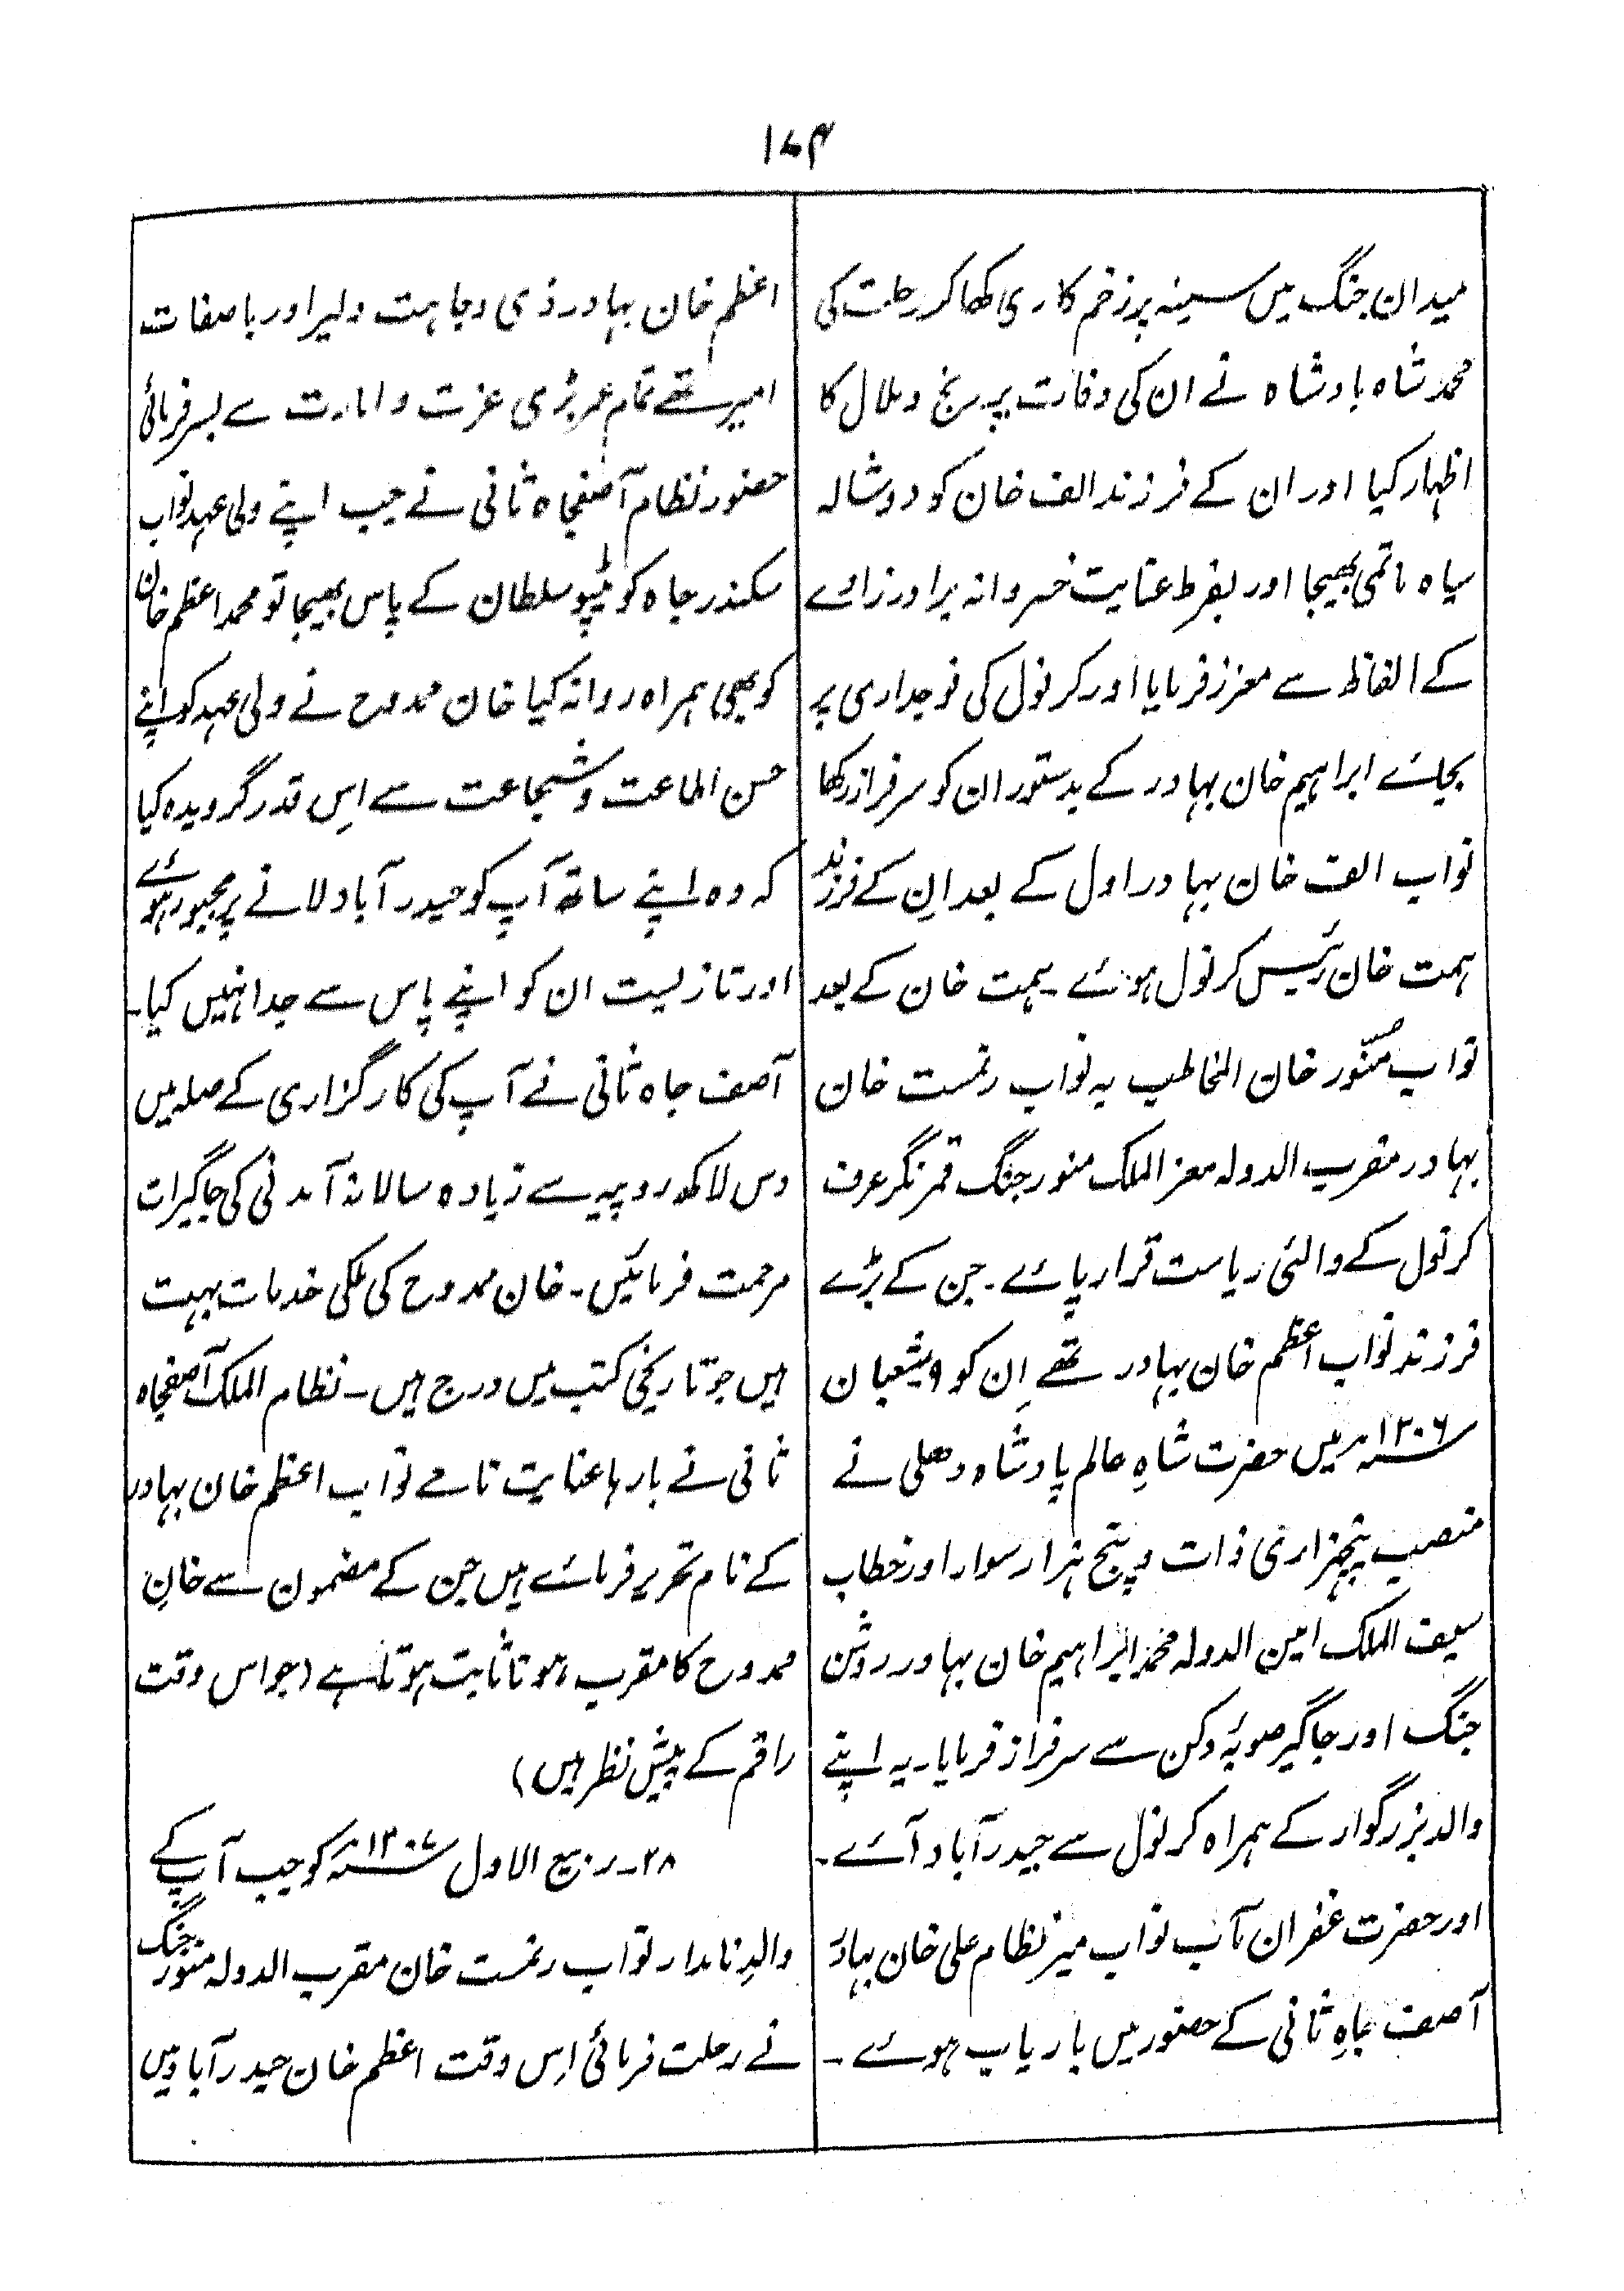 ۱۷۴
میدان جنگ میں سینہ پر زخم کاری کھا کر رحلت کی
محمد شاہ بادشاہ نے ان کی وفات پر رنج و ملال کا
اظہار کیا اور ان کے فرزند الف خان کو دوشالہ
سیاہ ماتمی بھیجا اور بفرط عنایت خسروانہ برادر زادے
کے الفاظ سے معزز فرمایا اور کرنول کی فوجداری پر
بجائے ابراہیم خان بہادر کے بدستور ان کو سرفراز رکھا
نواب الف خان بہادر اول کے بعد اِن کے فرزند
ہمت خان رئیس کرنول ہوئے ۔ ہمت خان کے بعد
نواب منّور خان المخاطب بہ نواب رنمست خان
بہادر مقرب الدولہ معز الملک منور جنگ قمر نگر عرف
کرنول کے والئی ریاست قرار پائے ۔ جن کے بڑے
فرزند نواب اعظم خان بہادر تھے اِن کو ۹ شعبان
۱۲۰۶ سنہ میں حضرت شاہِ عالم پادشاہ دھلی نے
منصب پنجہزاری ذات و پنج ہزار سوار اور خطاب
سیف الملک امین الدولہ محمد ابراہیم خان بہادر روشن
جنگ اور جاگیر صوبۂ دکن سے سرفراز فرمایا ۔ یہ اپنے
والد بزرگوار کے ہمراہ کرنول سے حیدرآباد آئے ۔
اور حضرت غفران مآب نواب میر نظام علی خان بہادر
آصف جاہِ ثانی کے حضور میں باریاب ہوئے ۔
اعظم خان بہادر ذی وجاہت دلیر اور باصفات
امیر تھے تمام عمر بڑی عزت و امارت سے بسر فرمائی
حضور نظام آصفجاہ ثانی نے جب اپنے ولی عہد نواب
سکندر جاہ کو ٹیپو سلطان کے پاس بھیجا تو محمد اعظم خان
کو بھی ہمراہ روانہ کیا خان ممدوح نے ولی عہد کو اپنے
حسن اطاعت و شجاعت سے اِس قدر گرویدہ کیا
کہ وہ اپنے ساتھ آپ کو حیدرآباد لانے پر مجبور ہوئے
اور تا زیست ان کو اپنے پاس سے جدا نہیں کیا ۔
آصف جاہ ثانی نے آپ کی کارگزاری کے صلہ میں
دس لاکھ روپیہ سے زیادہ سالانہ آمدنی کی جاگیرات
مرحمت فرمائیں ۔ خان ممدوح کی ملکی خدمات بہت
ہیں جو تاریخی کتب میں درج ہیں ۔ نظام الملک آصفجاہ
ثانی نے بارہا عنایت نامے نواب اعظم خان بہادر
کے نام تحریر فرمائے ہیں جن کے مضمون سے خانِ
ممدوح کا مقرب ہونا ثابت ہوتا ہے (جو اس وقت
راقم کے پیش نظر ہیں)
۲۸ ۔ ربیع الاول ۱۲۰۷ سنہ کو جب آپ کے
والدِ نامدار نواب رنمست خان مقرب الدولہ منور جنگ
نے رحلت فرمائی اِس وقت اعظم خان حیدرآباد میں